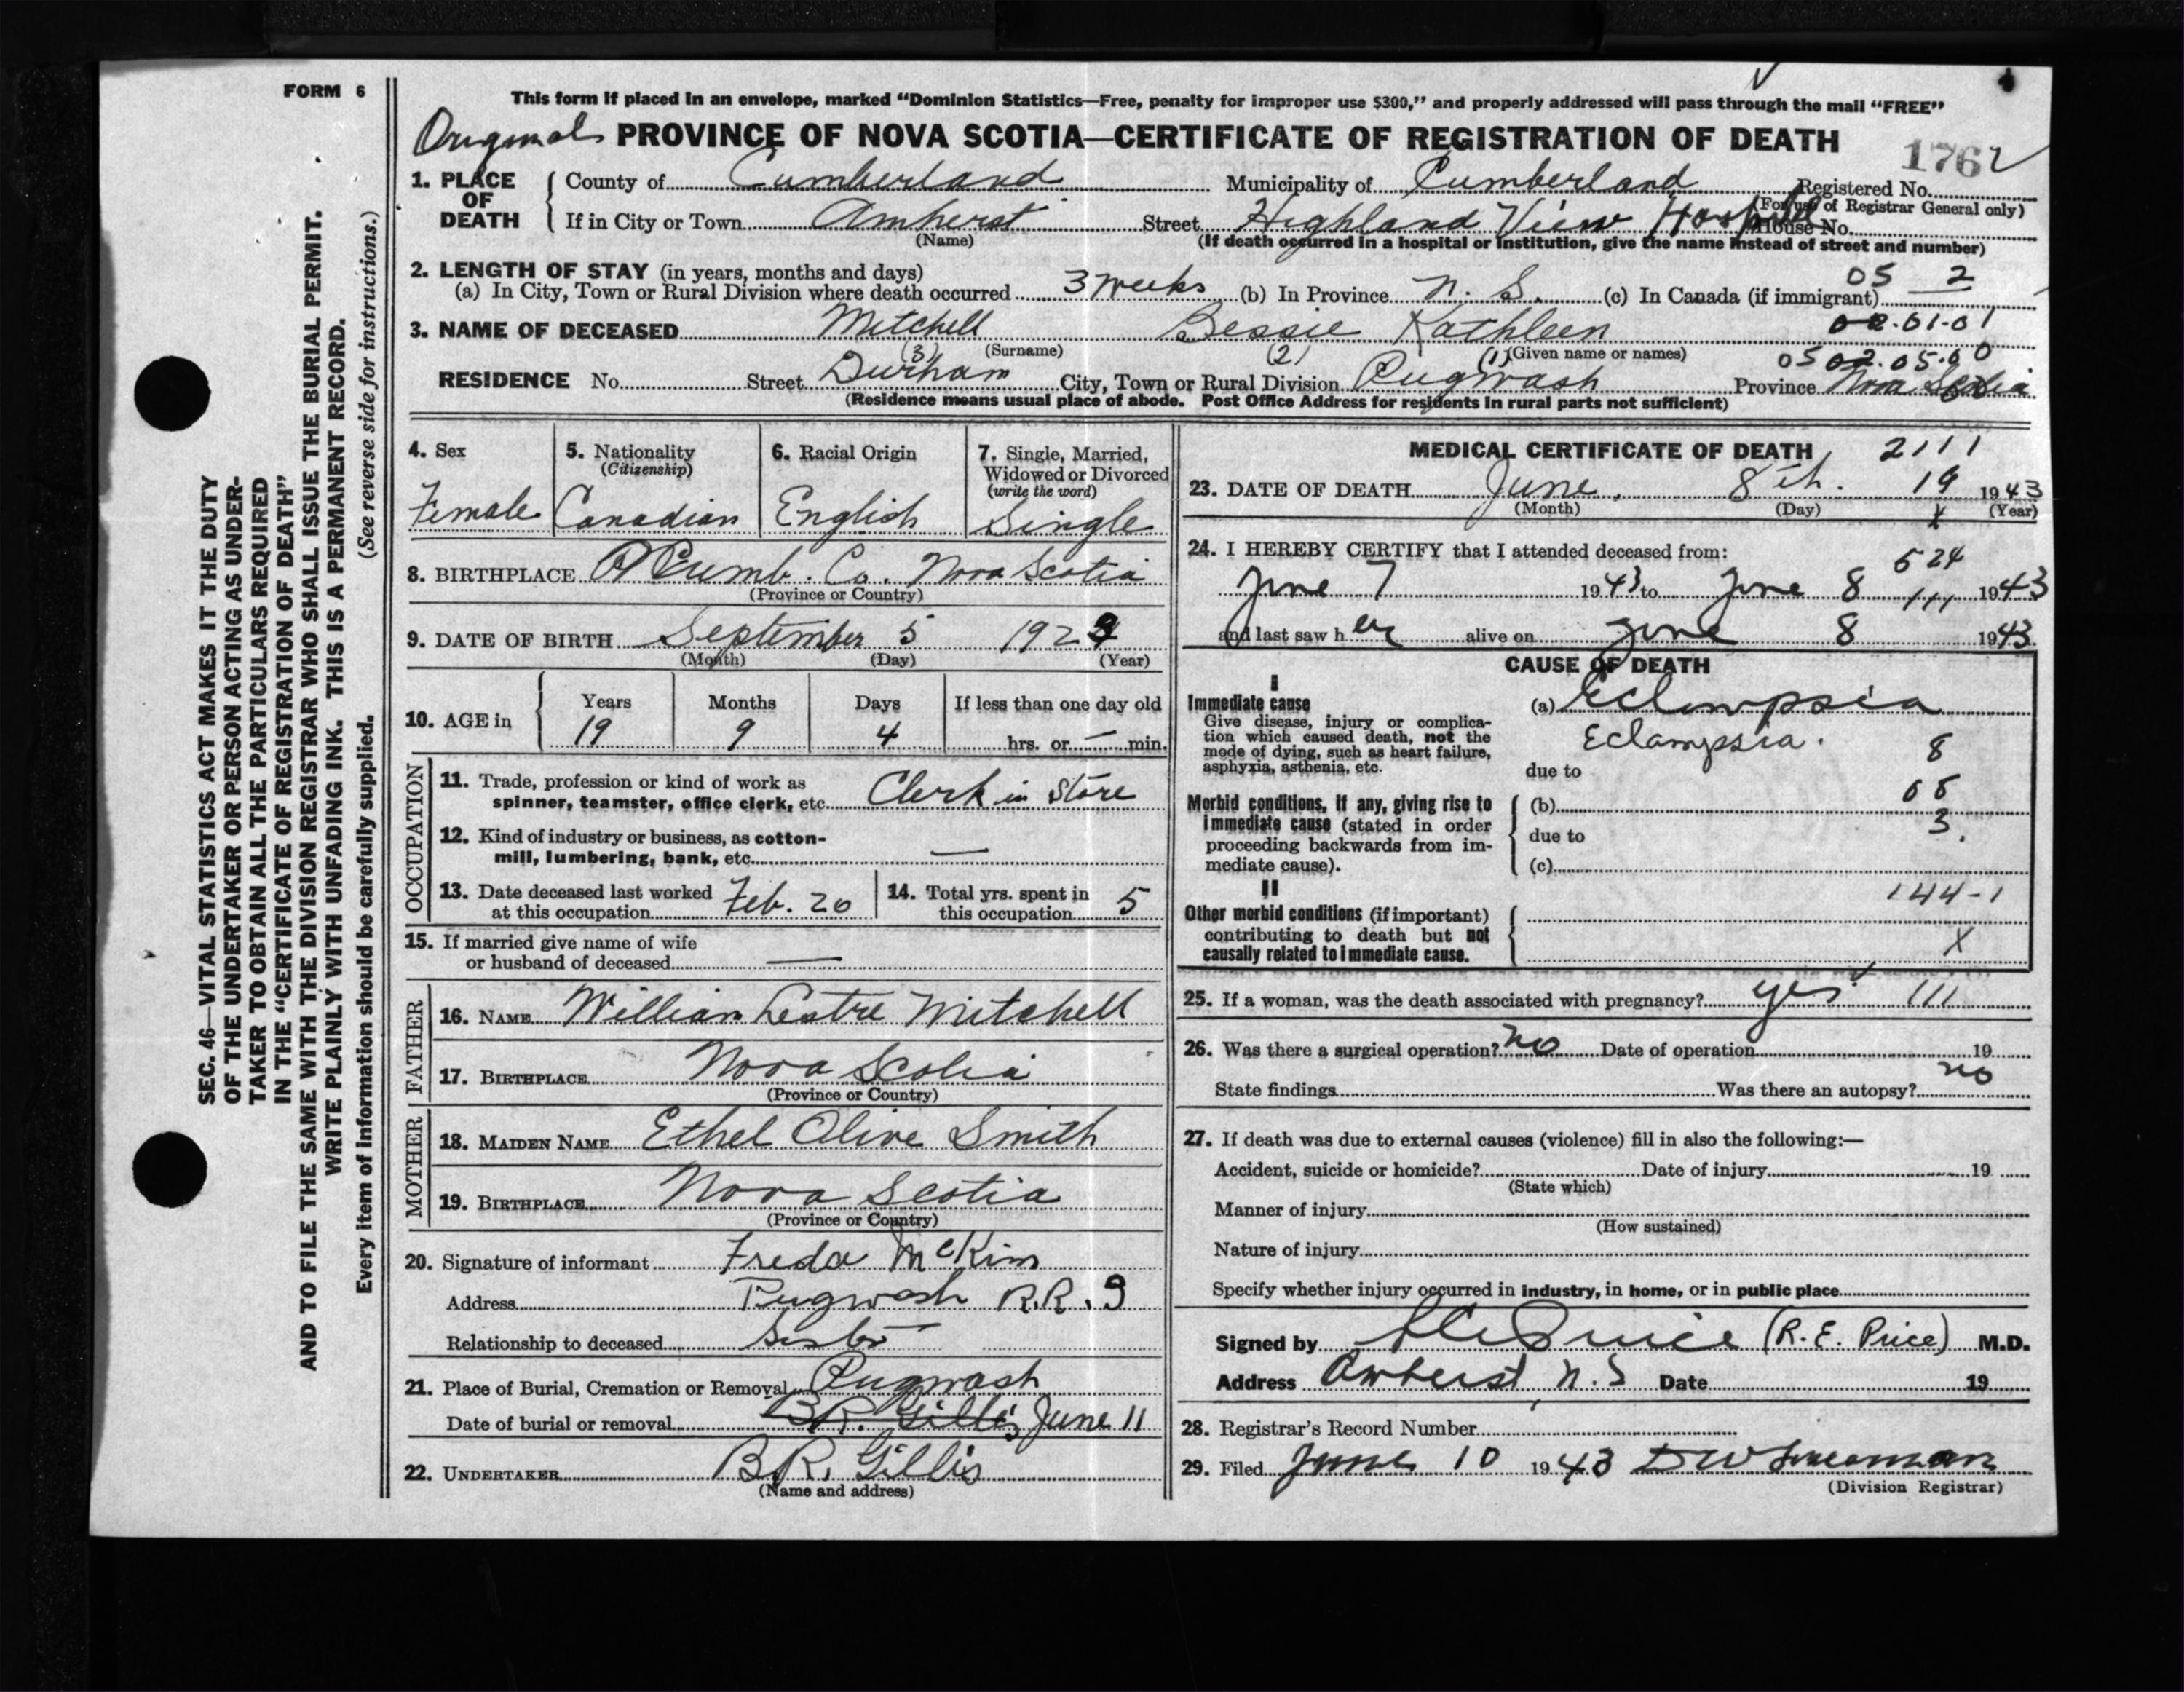 FORM 6
This form if placed in an envelope, marked "Dominion Statistics—Free, penalty for improper use $300," and properly addressed will pass through the mail "FREE"
Original PROVINCE OF NOVA SCOTIA—CERTIFICATE OF REGISTRATION OF DEATH
1762
1. PLACE OF DEATH { County of Cumberland Municipality of Cumberland Registered No.
(For use of Registrar General only)
If in City or Town Amherst Street Highland View Hospital House No.
(Name) (If death occurred in a hospital or institution, give the name instead of street and number)
2. LENGTH OF STAY (in years, months and days) 05 2
(a) In City, Town or Rural Division where death occurred 3 weeks (b) In Province N. S. (c) In Canada (if immigrant)
3. NAME OF DECEASED Mitchell Bessie Kathleen 02.01-01
(Surname) (Given name or names)
(3) (2) (1) 05 02.05.00
RESIDENCE No. Street Durham City, Town or Rural Division Pugwash Province Nova Scotia
(Residence means usual place of abode. Post Office Address for residents in rural parts not sufficient)
4. Sex Female
5. Nationality (Citizenship) Canadian
6. Racial Origin English
7. Single, Married, Widowed or Divorced (write the word) Single
8. BIRTHPLACE Cumb. Co. Nova Scotia
(Province or Country)
9. DATE OF BIRTH September 5 1923
(Month) (Day) (Year)
10. AGE in { Years Months Days If less than one day old
19 9 4 hrs. or — min.
OCCUPATION
11. Trade, profession or kind of work as
spinner, teamster, office clerk, etc. Clerk in store
12. Kind of industry or business, as cotton-
mill, lumbering, bank, etc. —
13. Date deceased last worked at this occupation Feb. 20
14. Total yrs. spent in this occupation 5
15. If married give name of wife
or husband of deceased —
FATHER
16. NAME William Mitchell
17. BIRTHPLACE Nova Scotia
(Province or Country)
MOTHER
18. MAIDEN NAME Ethel Olive Smith
19. BIRTHPLACE Nova Scotia
(Province or Country)
20. Signature of informant Freda McKim
Address Pugwash R.R. 3
Relationship to deceased Sister
21. Place of Burial, Cremation or Removal Pugwash
Date of burial or removal B.R. Gillis June 11
22. UNDERTAKER B.R. Gillis
(Name and address)
MEDICAL CERTIFICATE OF DEATH 2111
23. DATE OF DEATH June, 8th. 19 1943
(Month) (Day) (Year)
x
24. I HEREBY CERTIFY that I attended deceased from:
524
June 7 1943 to June 8 111 1943
and last saw her alive on June 8 1943
CAUSE OF DEATH
I
Immediate cause (a) Eclampsia
Give disease, injury or complica-
tion which caused death, not the
mode of dying, such as heart failure,
asphyxia, asthenia, etc.
Eclampsia. 8
due to
Morbid conditions, if any, giving rise to
immediate cause (stated in order
proceeding backwards from im-
mediate cause).
(b)
due to 3.
(c)
II 144-1
Other morbid conditions (if important)
contributing to death but not
causally related to immediate cause.
X
25. If a woman, was the death associated with pregnancy? yes. 111
26. Was there a surgical operation? no Date of operation 19
State findings Was there an autopsy? no
27. If death was due to external causes (violence) fill in also the following:—
Accident, suicide or homicide? Date of injury 19
(State which)
Manner of injury
(How sustained)
Nature of injury
Specify whether injury occurred in industry, in home, or in public place
Signed by (R. E. Price) M.D.
Address Amherst, N.S Date 19
28. Registrar's Record Number
29. Filed June 10 1943
(Division Registrar)
SEC. 46—VITAL STATISTICS ACT MAKES IT THE DUTY
OF THE UNDERTAKER OR PERSON ACTING AS UNDER-
TAKER TO OBTAIN ALL THE PARTICULARS REQUIRED
IN THE "CERTIFICATE OF REGISTRATION OF DEATH"
AND TO FILE THE SAME WITH THE DIVISION REGISTRAR WHO SHALL ISSUE THE BURIAL PERMIT.
WRITE PLAINLY WITH UNFADING INK. THIS IS A PERMANENT RECORD.
Every item of information should be carefully supplied. (See reverse side for instructions.)